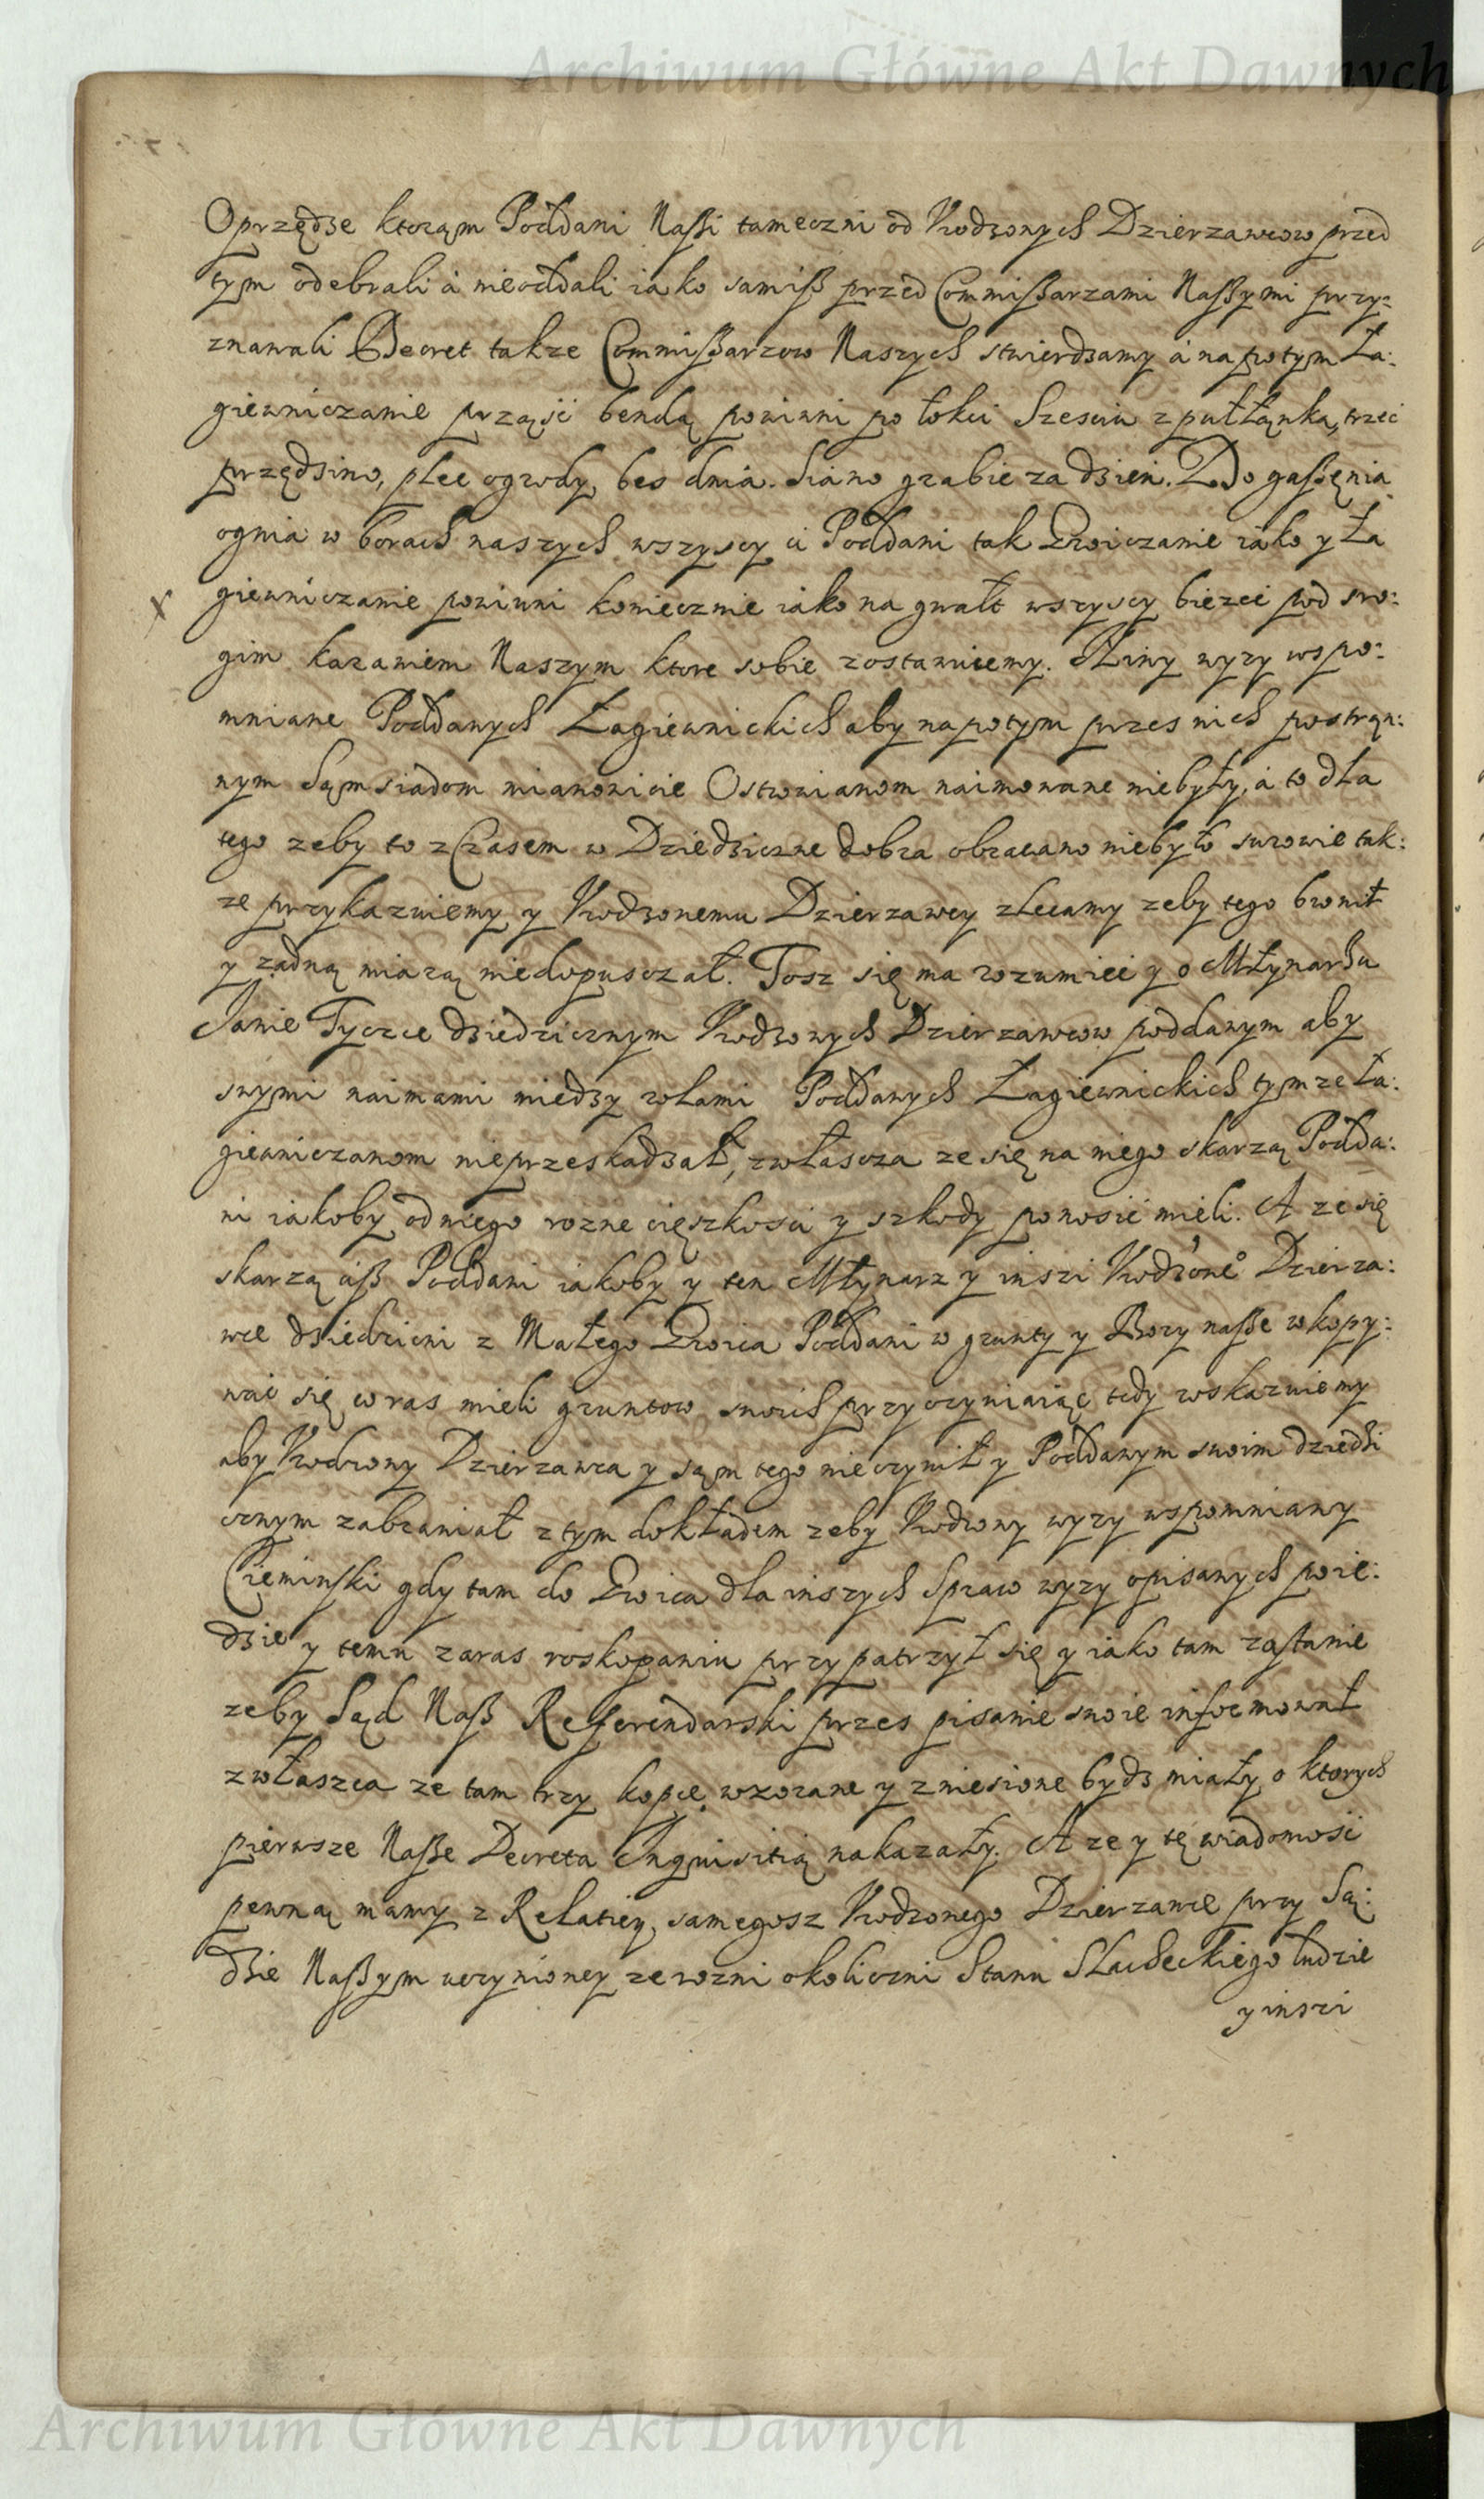 Archiwum Główne Akt Dawnych
O przędze ktorąm Poddani Naßi tameczni od Vrodzonych Dzierzawcow przed
tym odebrali á nieoddali iako samiß przed Commißarzami Naßymi przy:
znawali Decret takze Commißarzow Naszych stwierdzamy á napotym Ła:
giewniczanie prząść bendą powinni po łokci Szesciu z pułłąnka, trzeć
przędsino, pleć ogrody, bes dnia. Siano grabić za dzień. Do gaßęnia
ognia w borach naszych wszyscy ci Poddani tak Zwiczanie iáko y Ła
giewniczanie powinni koniecznie iáko na gwałt wszyscy biezeć pod sro:
gim karaniem Naszym ktore sobie zostawuiemy. Niwy wyzy wspo:
mniane Poddanych Łagiewnickich aby napotym przes nich postrąn:
nym Sąmsiadom mianowicie Ostrowianom naimowane niebyły, á to dla
tego zeby to z Czasem w Dziedziczne dobra obracano niebyło surowie tak:
ze przykazuiemy y Vrodzonemu Dzierzawcy zlecamy zeby tego bronił
y ządną miarą niedopuszczał. Tosz się ma rozumieć y o Młynarzu
Janie Tyczce dziedzicznym Vrodzonych Dzierzawcow poddanym aby
swymi naimami miedzy rolami Poddanych Łagiewnickich tymze Ła:
giewniczanom nieprzeskadzał, zwłascza ze się na niego skarzą Podda:
ni iakoby od niego rozne cięszkosci y szkody ponosić mieli. A ze się
skarzą ciß Poddani iakoby y ten Młynarz y inszi Vrodzone° Dzierza:
wce dziedzicni z Małego Poddani w grunty y Bory naße wkopy:
wać się wras mieli gruntow swoich przyczyniaiąc tedy roskazuiemy
aby Vrodzony Dzierzawca y sąm tego nieczynił y Poddanym swoim dziedzi
cznym zabraniał z tym dokładem zeby Vrodzony wyzy wspomniany
Ciemiński gdy tam do dla inszych Spraw wyzy opisanych poie:
dzie y temu zaras roskopaniu przypatrzył się y iako tam zastanie
zeby Sąd Naß Referendarski przes pisanie swoie informował
zwłaszca ze tam trzy kopce wzorane y zniesione bydz miały o ktorych
pierwsze Naße Decreta Inquisitią nakazały. A ze y tę wiadomość
pewną mamy z Relatiey samegosz Vrodzonego Dzierzawce przy Są:
dzie Naßym uczynioney ze rozni okoliczni Stanu Slacheckiego ludzie
y inszi
Archiwum Główne Akt Dawnych